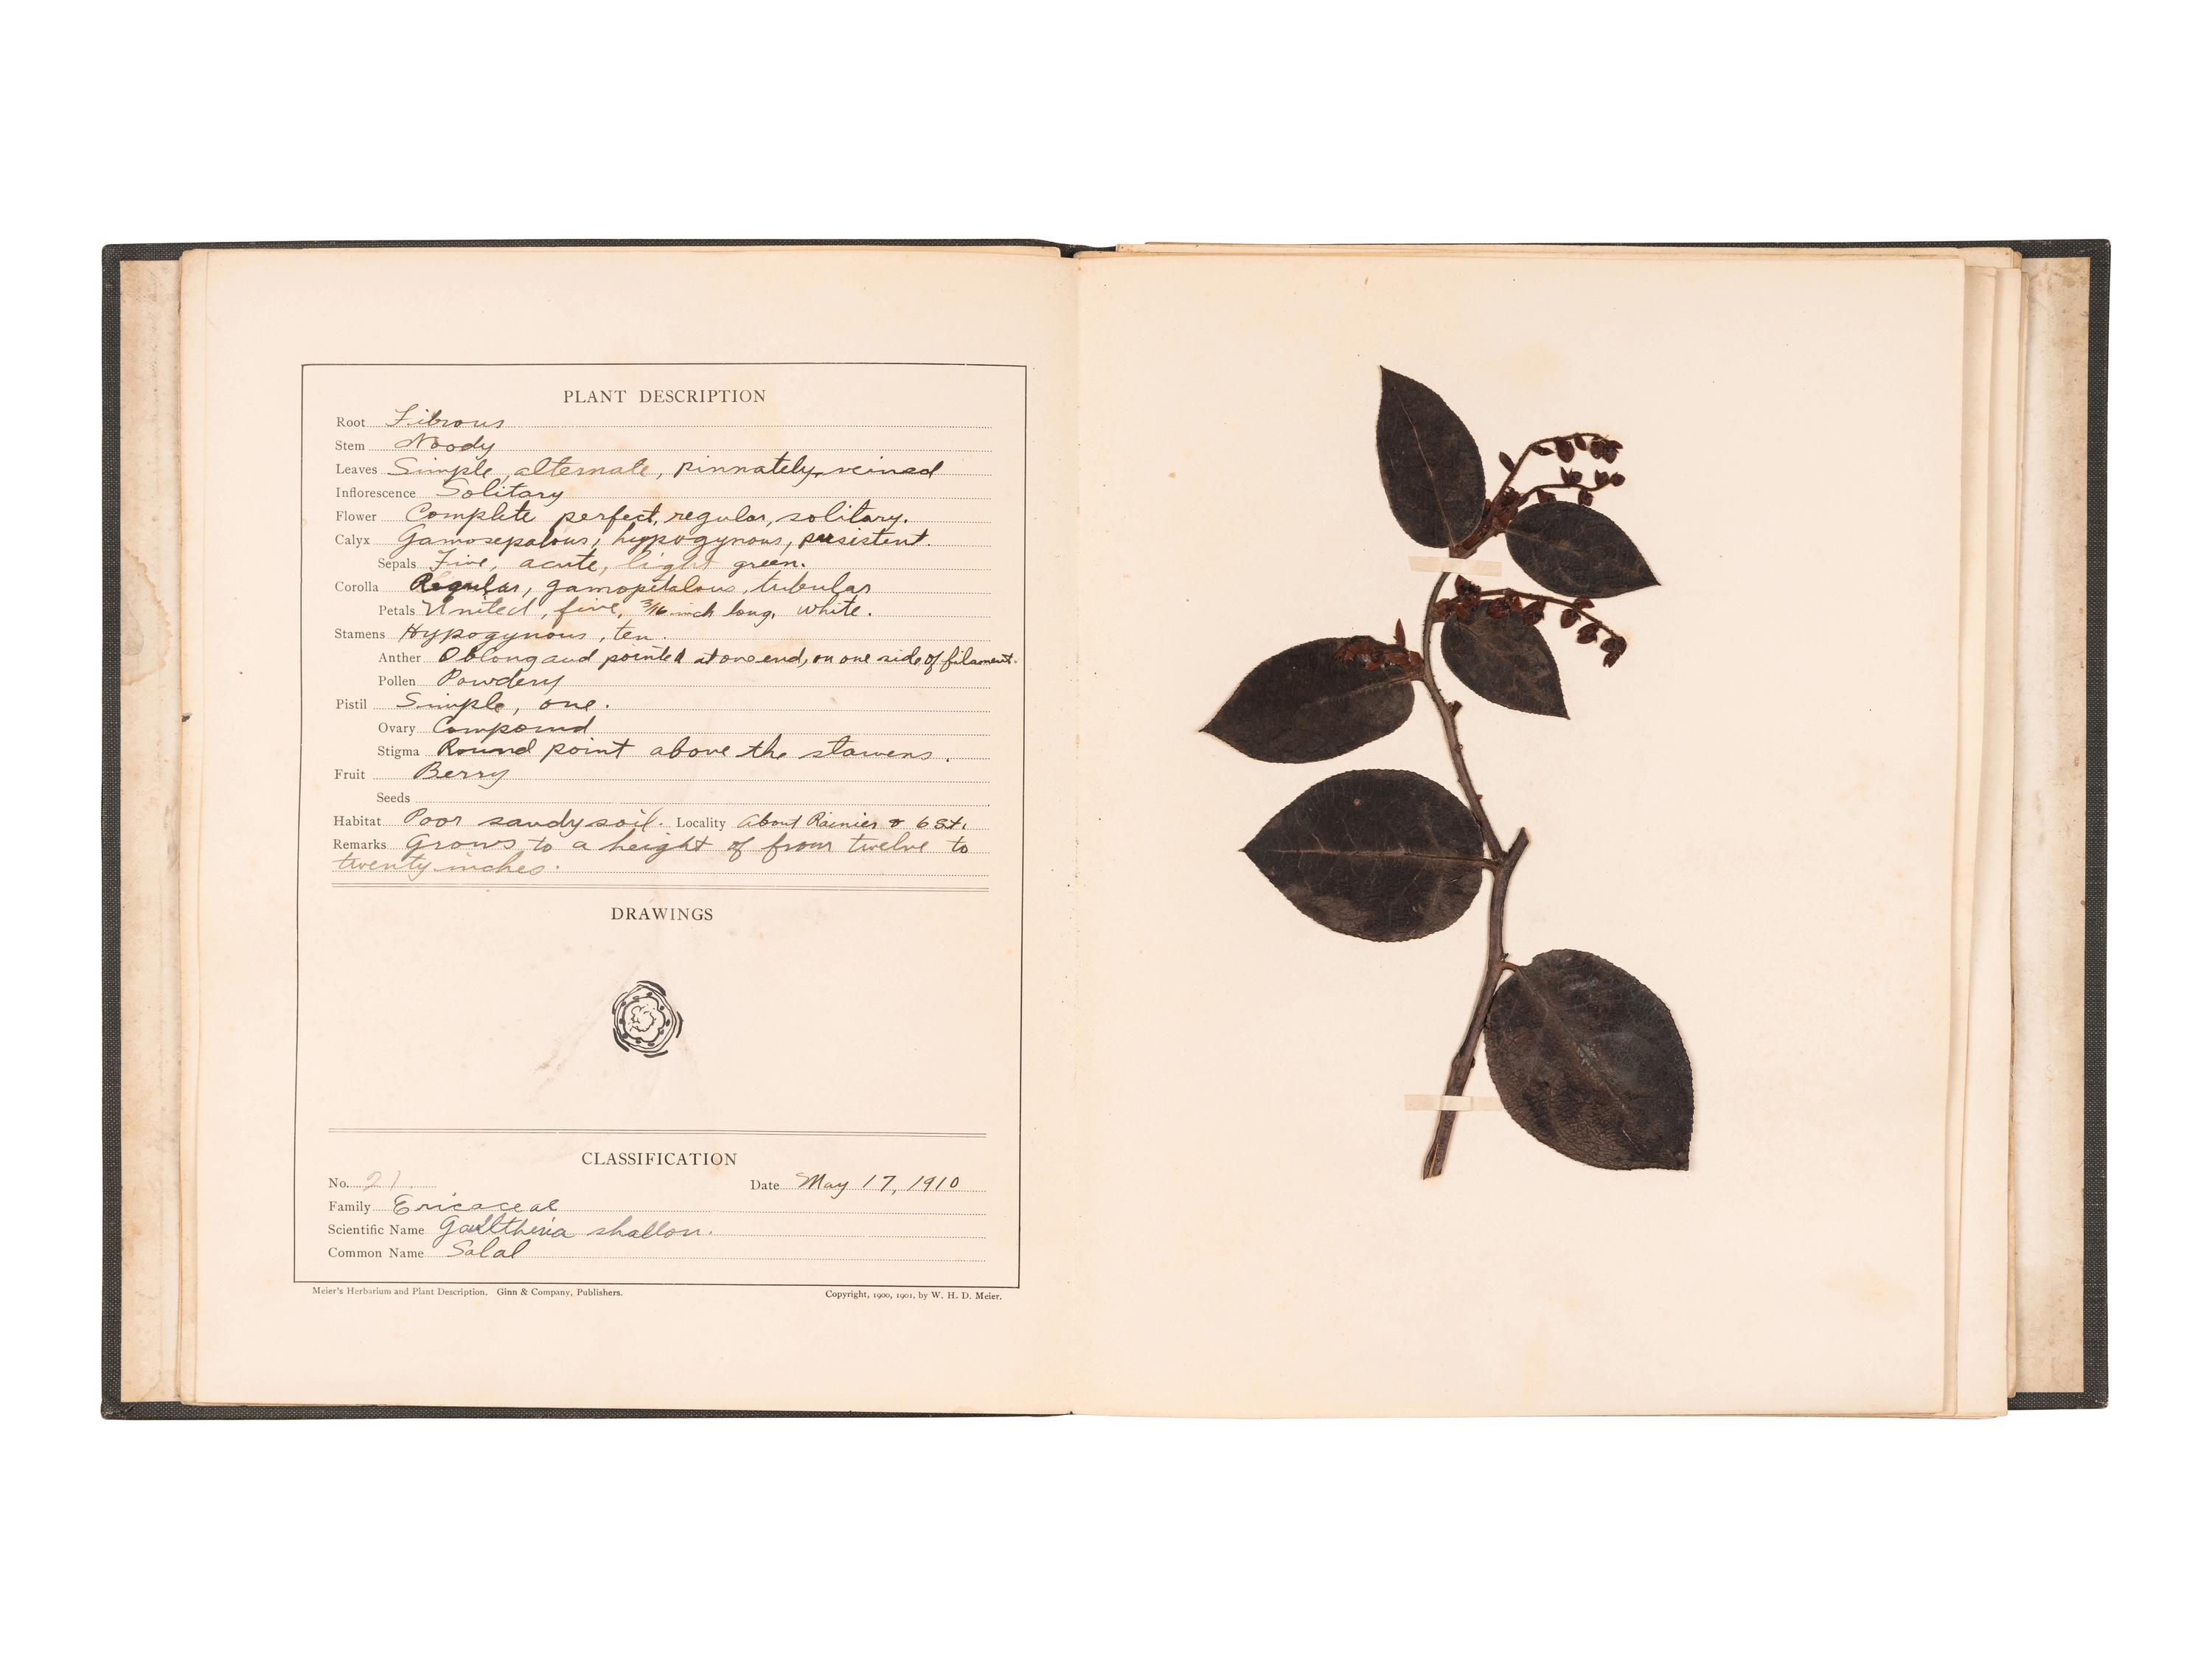 PLANT DESCRIPTION
Root Fibrous
Stem Woody
Leaves Simple, alternate, pinnately, veined
Inflorescence Solitary
Flower Complete perfect, regular, solitary.
Calyx Gamosepalous, hypogynous, persistent.
Sepals Five, acute, light green.
Corolla Regular, gamopetalous, tubular
Petals United, five, 3/16 inch long, white.
Stamens Hypogynous, ten.
Anther Oblong and pointed at one end, on one side of filament.
Pollen Powdery
Pistil Simple, one.
Ovary Compound
Stigma Round point above the stamens.
Fruit Berry
Seeds
Habitat Poor sandy soil. Locality About Rainier & 6 St.
Remarks Grows to a height of from twelve to
twenty inches.
DRAWINGS
CLASSIFICATION
No. 21. Date May 17, 1910
Family Ericaceae
Scientific Name Gaultheria shallon.
Common Name Salal
Meier's Herbarium and Plant Description. Ginn & Company, Publishers. Copyright, 1900, 1901, by W. H. D. Meier.